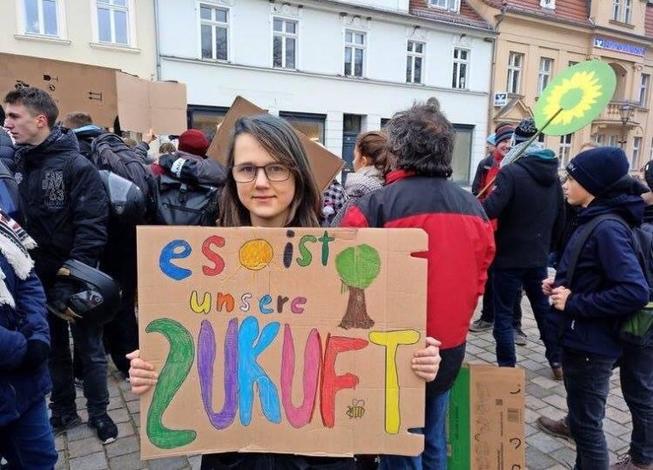 es ist
unsere
ZUKUNFT